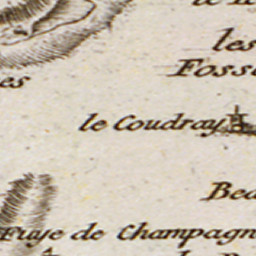 les
Foss
es
le Coudray
Bea
Fuye de Champagn